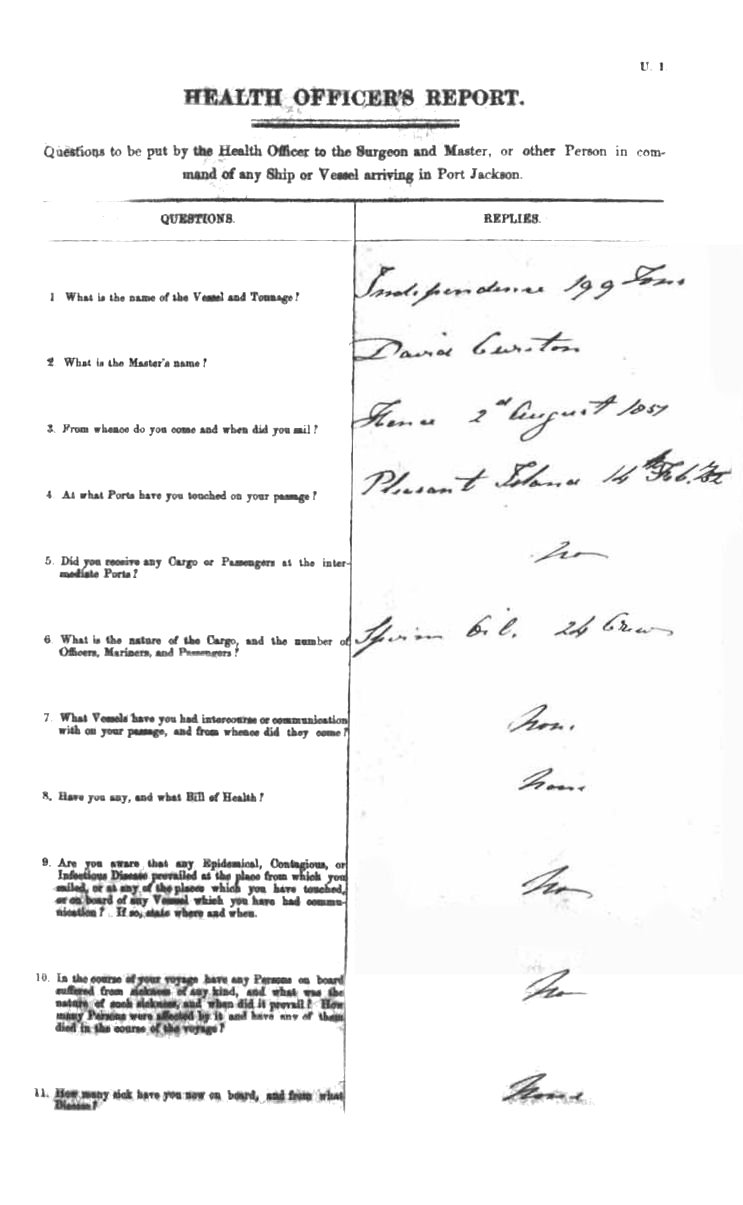 U. 1.
HEALTH OFFICER'S REPORT.
Questions to be put by the Health Officer to the Surgeon and Master, or other Person in com-
mand of any Ship or Vessel arriving in Port Jackson.
QUESTIONS.
REPLIES.
1 What is the name of the Vessel and Tonnage?
Independence 199 Tons
2 What is the Master's name?
David
3. From whence do you come and when did you sail?
Hence 2nd August 1851
4 At what Ports have you touched on your passage?
Pleasant Island 14th Feb. 52
5. Did you receive any Cargo or Passengers at the inter-
mediate Ports?
No
6 What is the nature of the Cargo, and the number of
Officers, Mariners, and Passengers?
Sperm Oil. 24 Crew
7. What Vessels have you had intercourse or communication
with on your passage, and from whence did they come?
None
8. Have you any, and what Bill of Health?
None
9. Are you aware that any Epidemical, Contagious, or
Infectious Disease prevailed at the place from which you
sailed, or at any of the places which you have touched,
or on board of any Vessel which you have had commu-
nication? If so, state where and when.
No
10. In the course of your voyage have any Persons on board
suffered from sickness of any kind, and what was the
nature of such sickness, and when did it prevail? How
many Persons were affected by it and have any of them
died in the course of the voyage?
No
11. How many sick have you now on board, and from what
Disease?
None